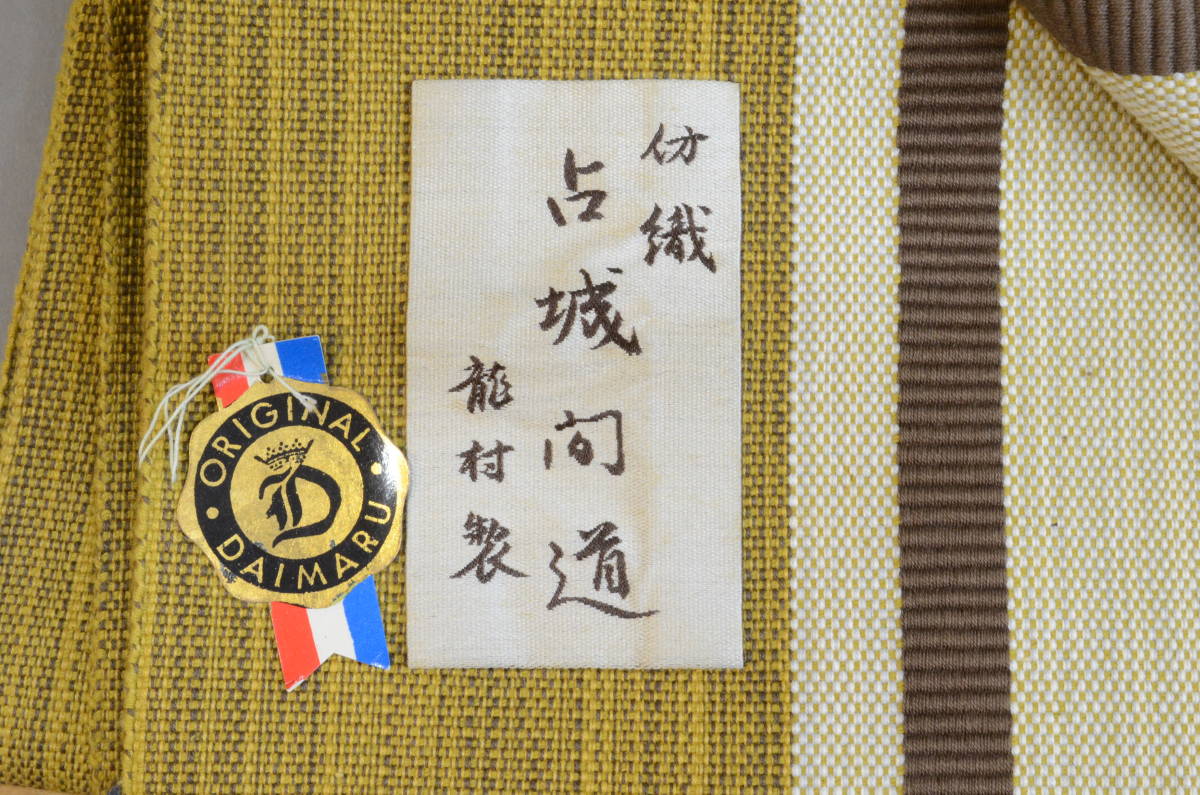 仿織
占城間道
龍村製
ORIGINAL
D
DAIMARU